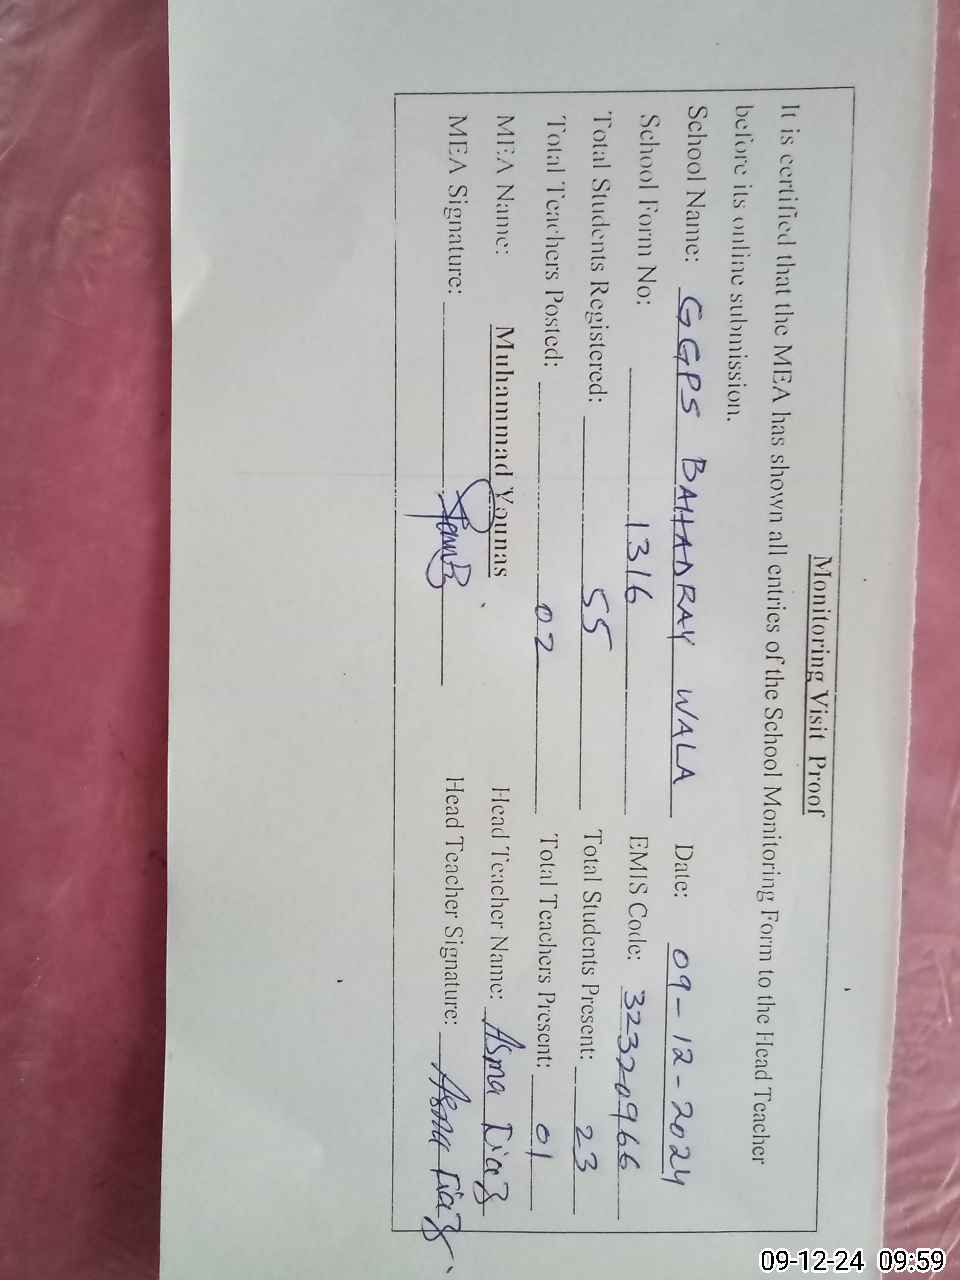 Monitoring Visit Proof
It is certified that the MEA has shown all entries of the School Monitoring Form to the Head Teacher
before its online submission.
School Name: GGPS BAHADRAY WALA Date: 09-12-2024
School Form No: 1316 EMIS Code: 32320966
Total Students Registered: 55 Total Students Present: 23
Total Teachers Posted: 02 Total Teachers Present: 01
MEA Name: Muhammad Younas Head Teacher Name: Asma Liaz
MEA Signature: Head Teacher Signature: Asma Liaz
09-12-24 09:59